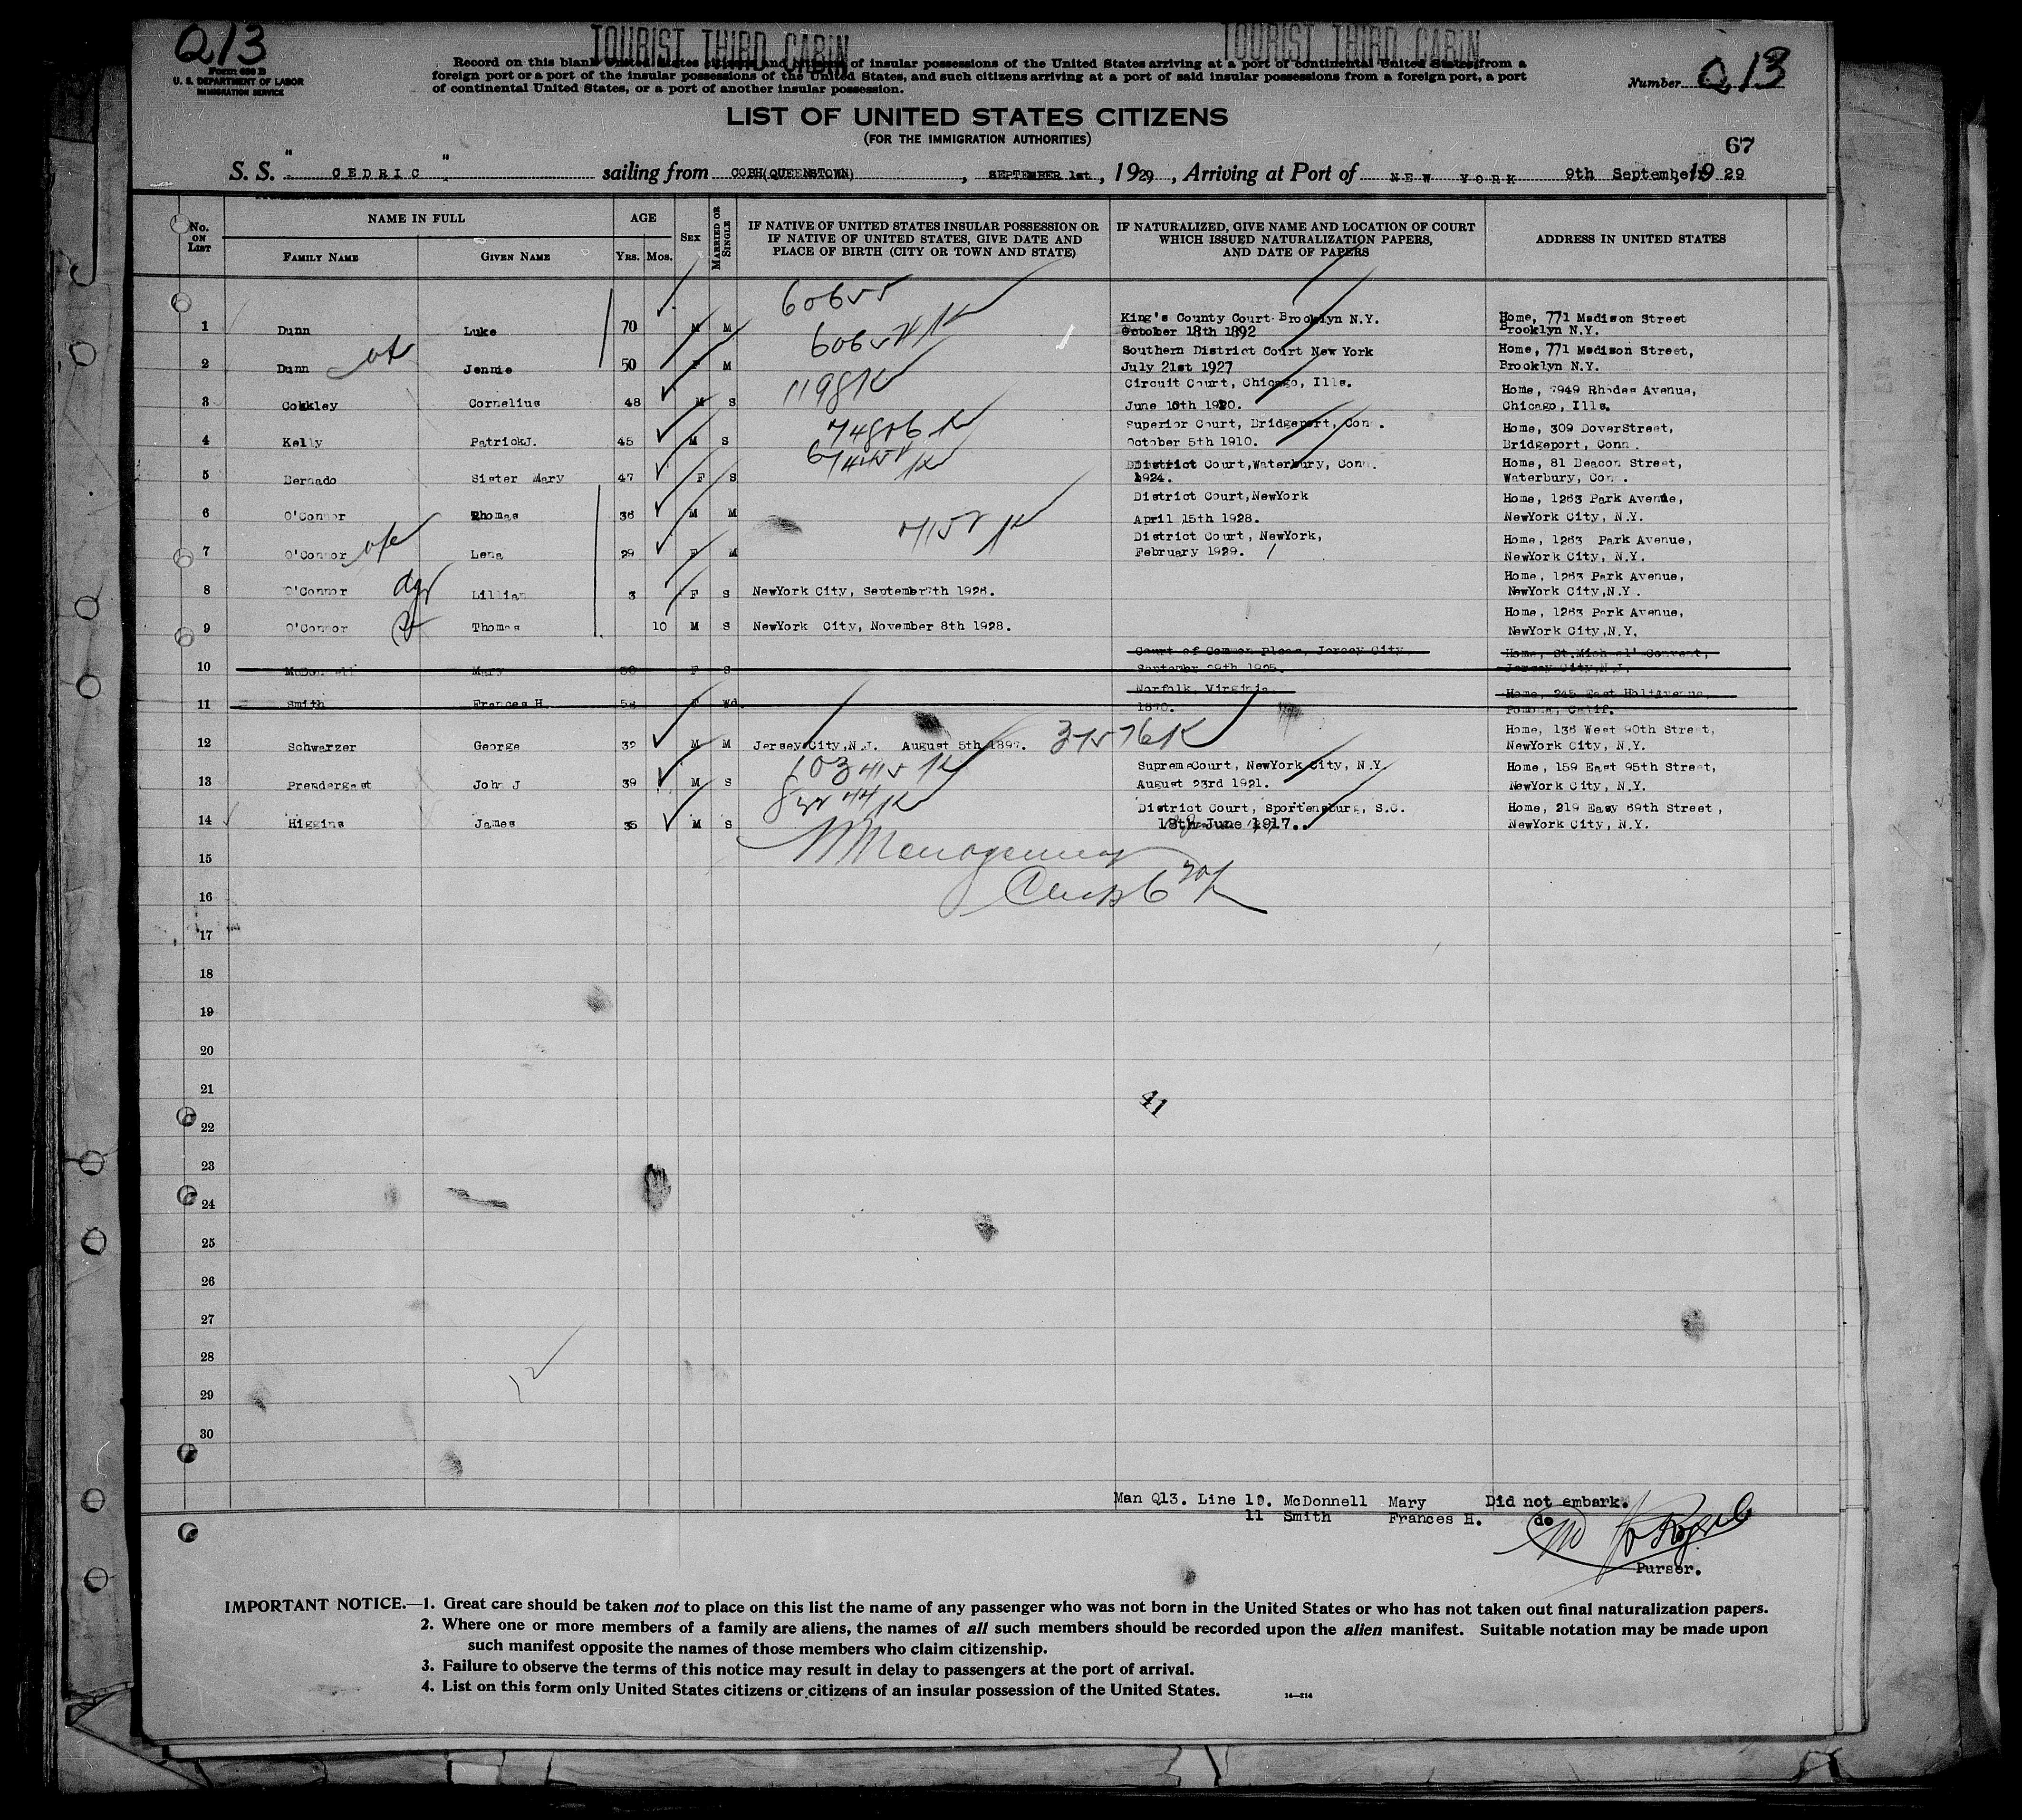 Q13
TOURIST THIRD CABIN TOURIST THIRD CABIN
Form 630 B
U. S. DEPARTMENT OF LABOR
IMMIGRATION SERVICE
Record on this blank United States citizens and citizens of insular possessions of the United States arriving at a port of continental United States from a
foreign port or a port of the insular possessions of the United States, and such citizens arriving at a port of said insular possessions from a foreign port, a port
of continental United States, or a port of another insular possession.
Number Q13
LIST OF UNITED STATES CITIZENS
(FOR THE IMMIGRATION AUTHORITIES)
67
S. S. "CEDRIC" sailing from COBH(QUEENSTOWN), SEPTEMBER 1st, 1929, Arriving at Port of NEW YORK 9th September, 1929
No. ON LIST
NAME IN FULL
FAMILY NAME GIVEN NAME
AGE
YRS. MOS.
SEX
MARRIED OR SINGLE
IF NATIVE OF UNITED STATES INSULAR POSSESSION OR
IF NATIVE OF UNITED STATES, GIVE DATE AND
PLACE OF BIRTH (CITY OR TOWN AND STATE)
IF NATURALIZED, GIVE NAME AND LOCATION OF COURT
WHICH ISSUED NATURALIZATION PAPERS,
AND DATE OF PAPERS
ADDRESS IN UNITED STATES
60655
King's County Court Brooklyn N.Y. Home, 771 Madison Street
1 Dunn Luke 70 M M October 18th 1892 Brooklyn N.Y.
Southern District Court New York Home, 771 Madison Street,
2 Dunn Jennie 50 F M July 21st 1927 Brooklyn N.Y.
1198K
Circuit Court, Chicago, Ills. Home, 7949 Rhodes Avenue,
3 Cornelius 48 M S June 10th 1920. Chicago, Ills.
74806 K
Superior Court, Bridgeport, Conn. Home, 309 DoverStreet,
4 Kelly PatrickJ. 45 M S October 5th 1910. Bridgeport, Conn.
District Court,Waterbury, Conn. Home, 81 Beacon Street,
5 Bernado Sister Mary 47 F S 1924. Waterbury, Conn.
District Court,NewYork Home, 1263 Park Avenue,
6 O'Connor Thomas 36 M M April 15th 1928. NewYork City, N.Y.
District Court, NewYork, Home, 1263 Park Avenue,
7 O'Connor Lena 29 F M February 1929. NewYork City, N.Y.
Home, 1263 Park Avenue,
8 O'Connor dgr Lillian 3 F S NewYork City, September7th 1926. NewYork City,N.Y.
Home, 1263 Park Avenue,
9 O'Connor Thomas 10 M S NewYork City, November 8th 1928. NewYork City,N.Y.
Court of Common Pleas, Jersey City Home, St.Michael' Convent,
10 McDonnell Mary F S September 29th 1925. Jersey City,N.J.
Norfolk, Virginia. Home, 245 East HoltAvenue,
11 Smith Frances H F Wd. 1870. Pomona, Calif.
37576K
Home, 136 West 90th Street,
12 Schwarzer George 32 M M Jersey City,N.J. August 5th 1897. NewYork City, N.Y.
103415 K
SupremeCourt, NewYork City, N.Y. Home, 159 East 95th Street,
13 Prendergast John J 39 M S August 23rd 1921. NewYork City, N.Y.
District Court, Sportensburg, S.C. Home, 219 Easy 69th Street,
14 Higgins James 35 M S 18th June 1917. NewYork City, N.Y.
15
16
17
18
19
20
21
41
22
23
24
25
26
27
28
12
29
30
Man Q13. Line 10. McDonnell Mary Did not embark.
11 Smith Frances H. do
Purser.
IMPORTANT NOTICE.—1. Great care should be taken not to place on this list the name of any passenger who was not born in the United States or who has not taken out final naturalization papers.
2. Where one or more members of a family are aliens, the names of all such members should be recorded upon the alien manifest. Suitable notation may be made upon
such manifest opposite the names of those members who claim citizenship.
3. Failure to observe the terms of this notice may result in delay to passengers at the port of arrival.
4. List on this form only United States citizens or citizens of an insular possession of the United States.
14—214